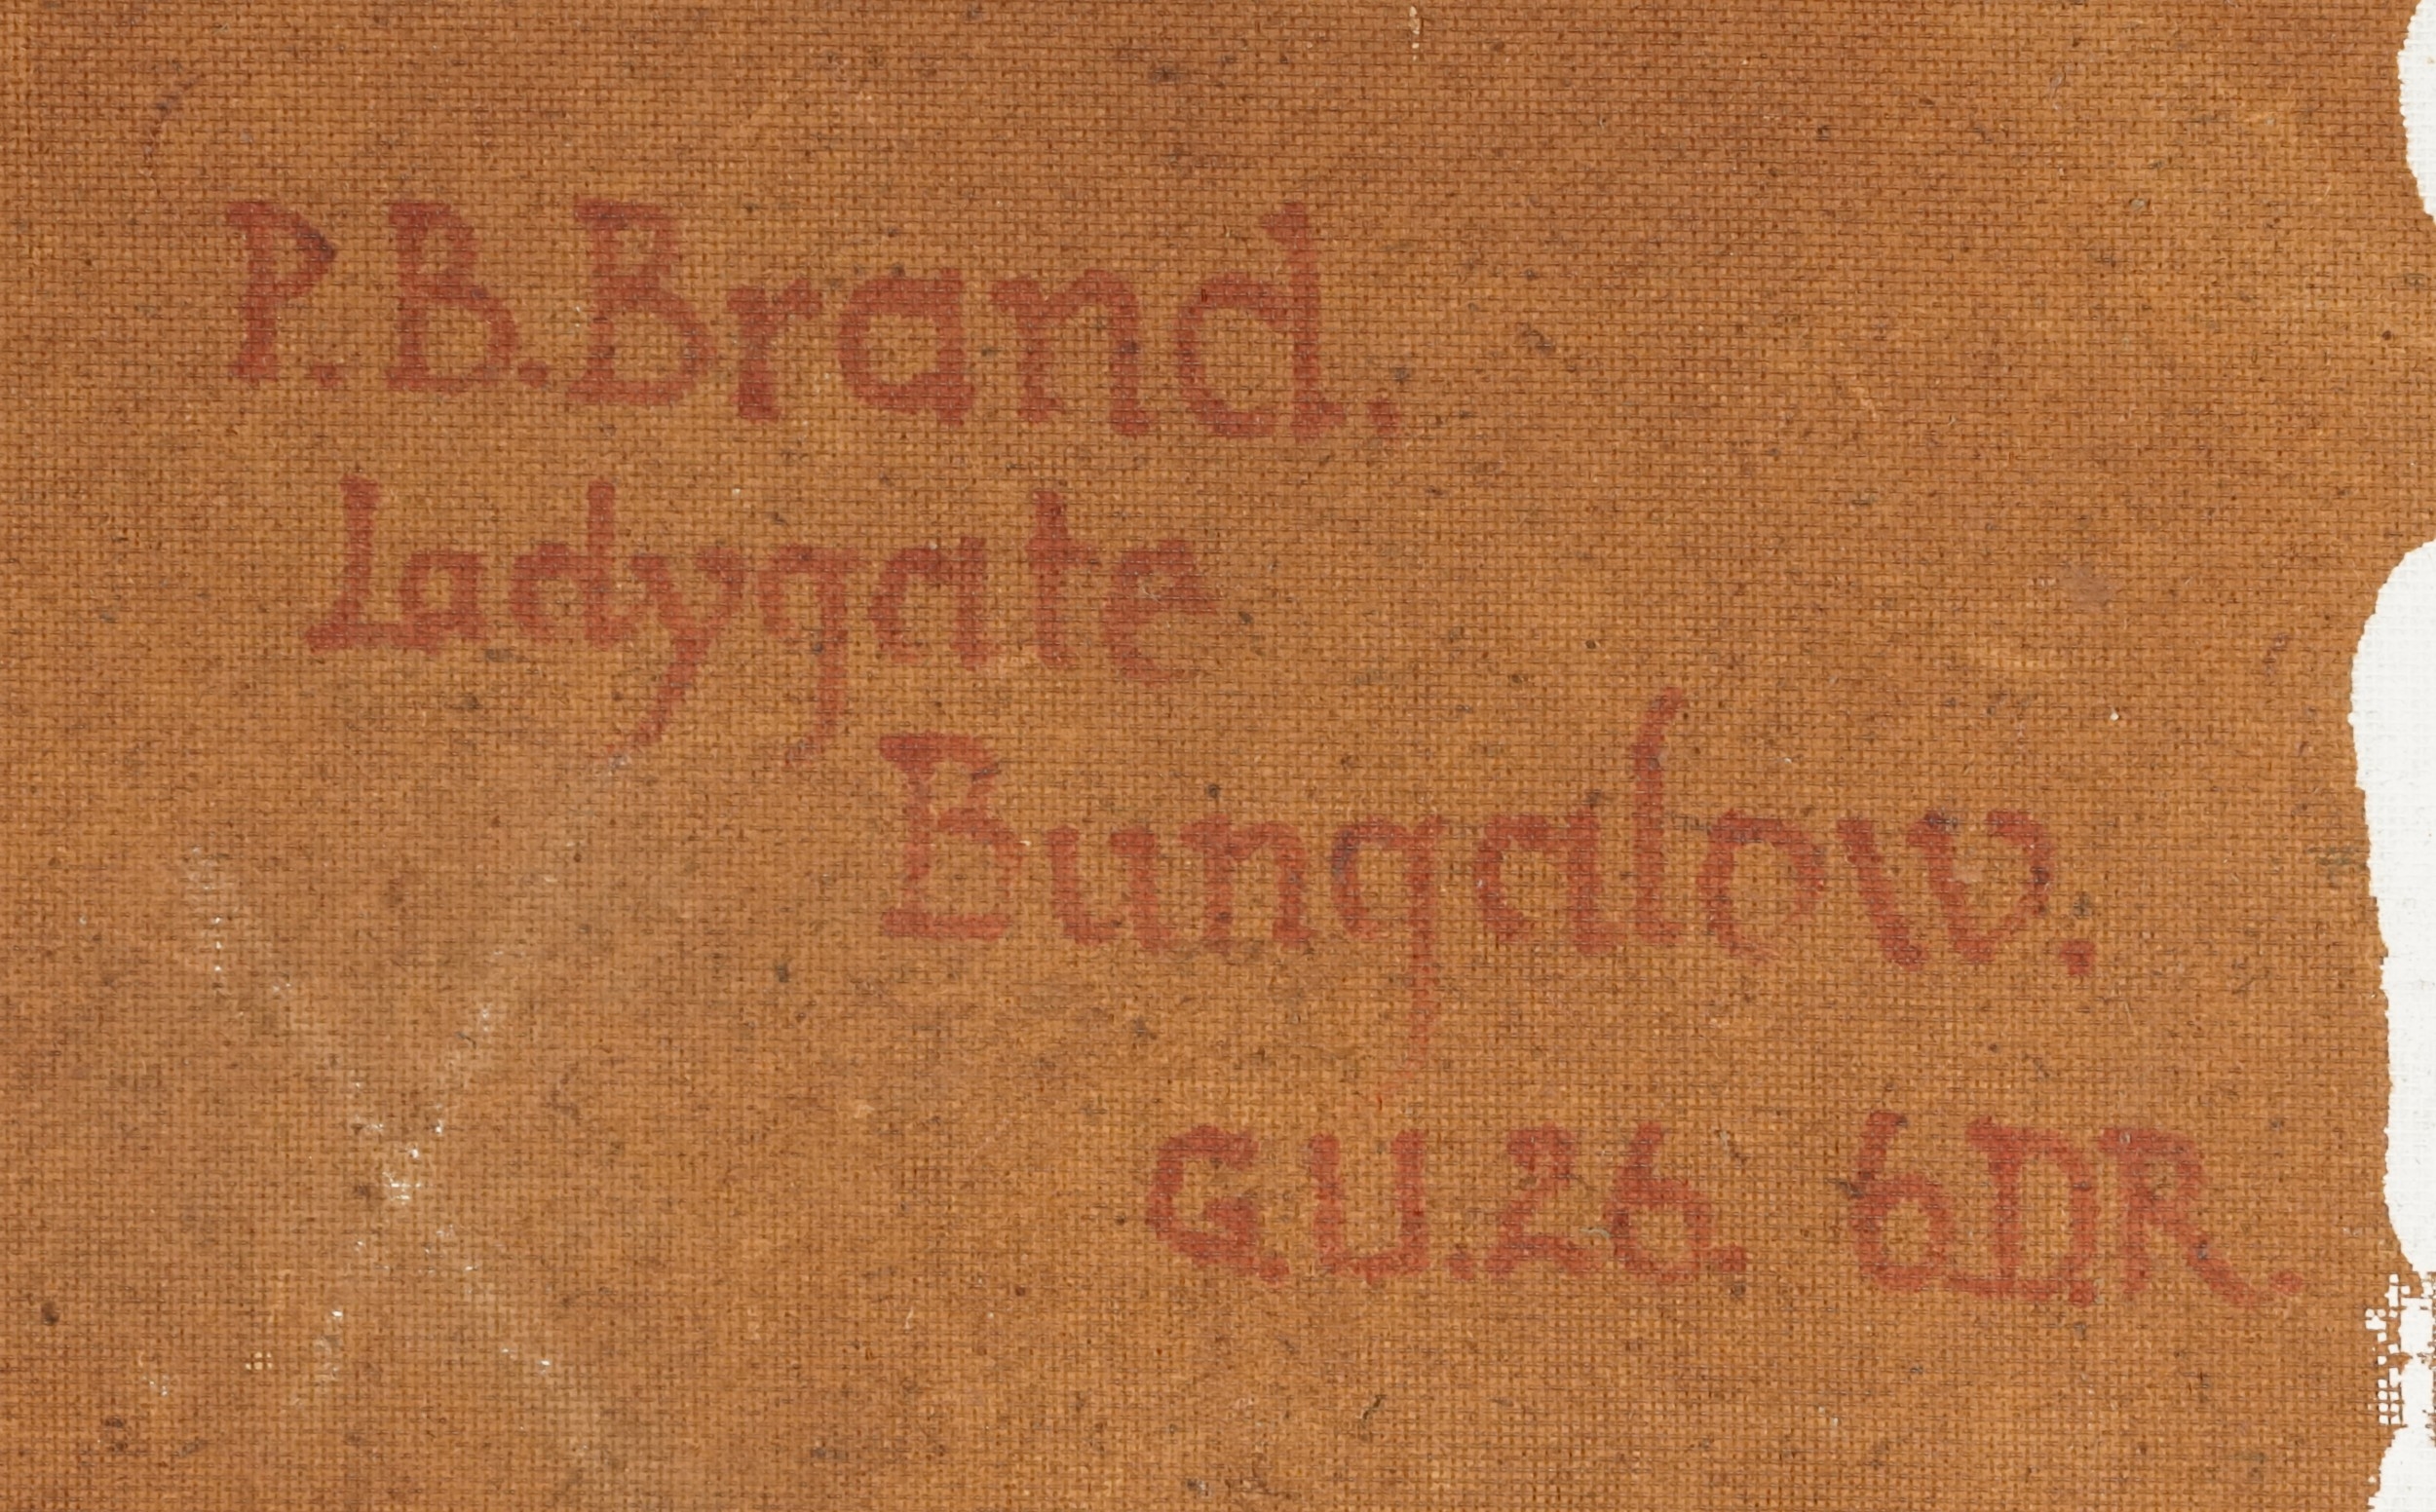 P.B.Brand.
Ladygate
Bungalow.
G.U.26. 6DR.